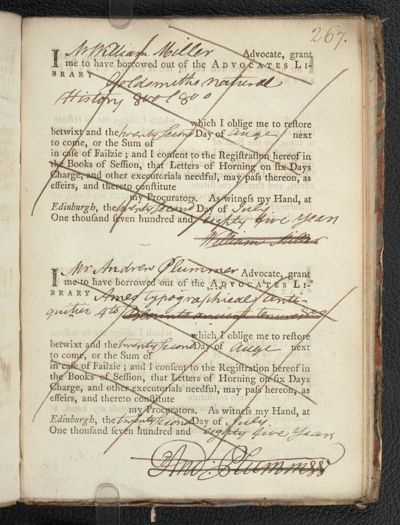 267.
I Mr William Miller Advocate, grant
me to have borrowed out of the ADVOCATES LI-
BRARY Goldsmiths natural
History 8vo
which I oblige me to restore
betwixt and the twenty second Day of Augt next
to come, or the Sum of
in case of Failzie; and I consent to the Registration hereof in
the Books of Session, that Letters of Horning on six Days
Charge, and other executorials needful, may pass thereon, as
effeirs, and thereto constitute
my Procurators. As witness my Hand, at
Edinburgh, the twenty second Day of July
One thousand seven hundred and eighty five Years
William Miller
I Mr Andrew Plummer Advocate, grant
me to have borrowed out of the ADVOCATES LI-
BRARY Ames typographical anti-
quities 4to
which I oblige me to restore
betwixt and the twenty second Day of Augt next
to come, or the Sum of
in case of Failzie; and I consent to the Registration hereof in
the Books of Session, that Letters of Horning on six Days
Charge, and other executorials needful, may pass hereon, as
effeirs, and thereto constitute
my Procurators. As witness my Hand, at
Edinburgh, the twenty second Day of July
One thousand seven hundred and eighty five Years
And: Plummer